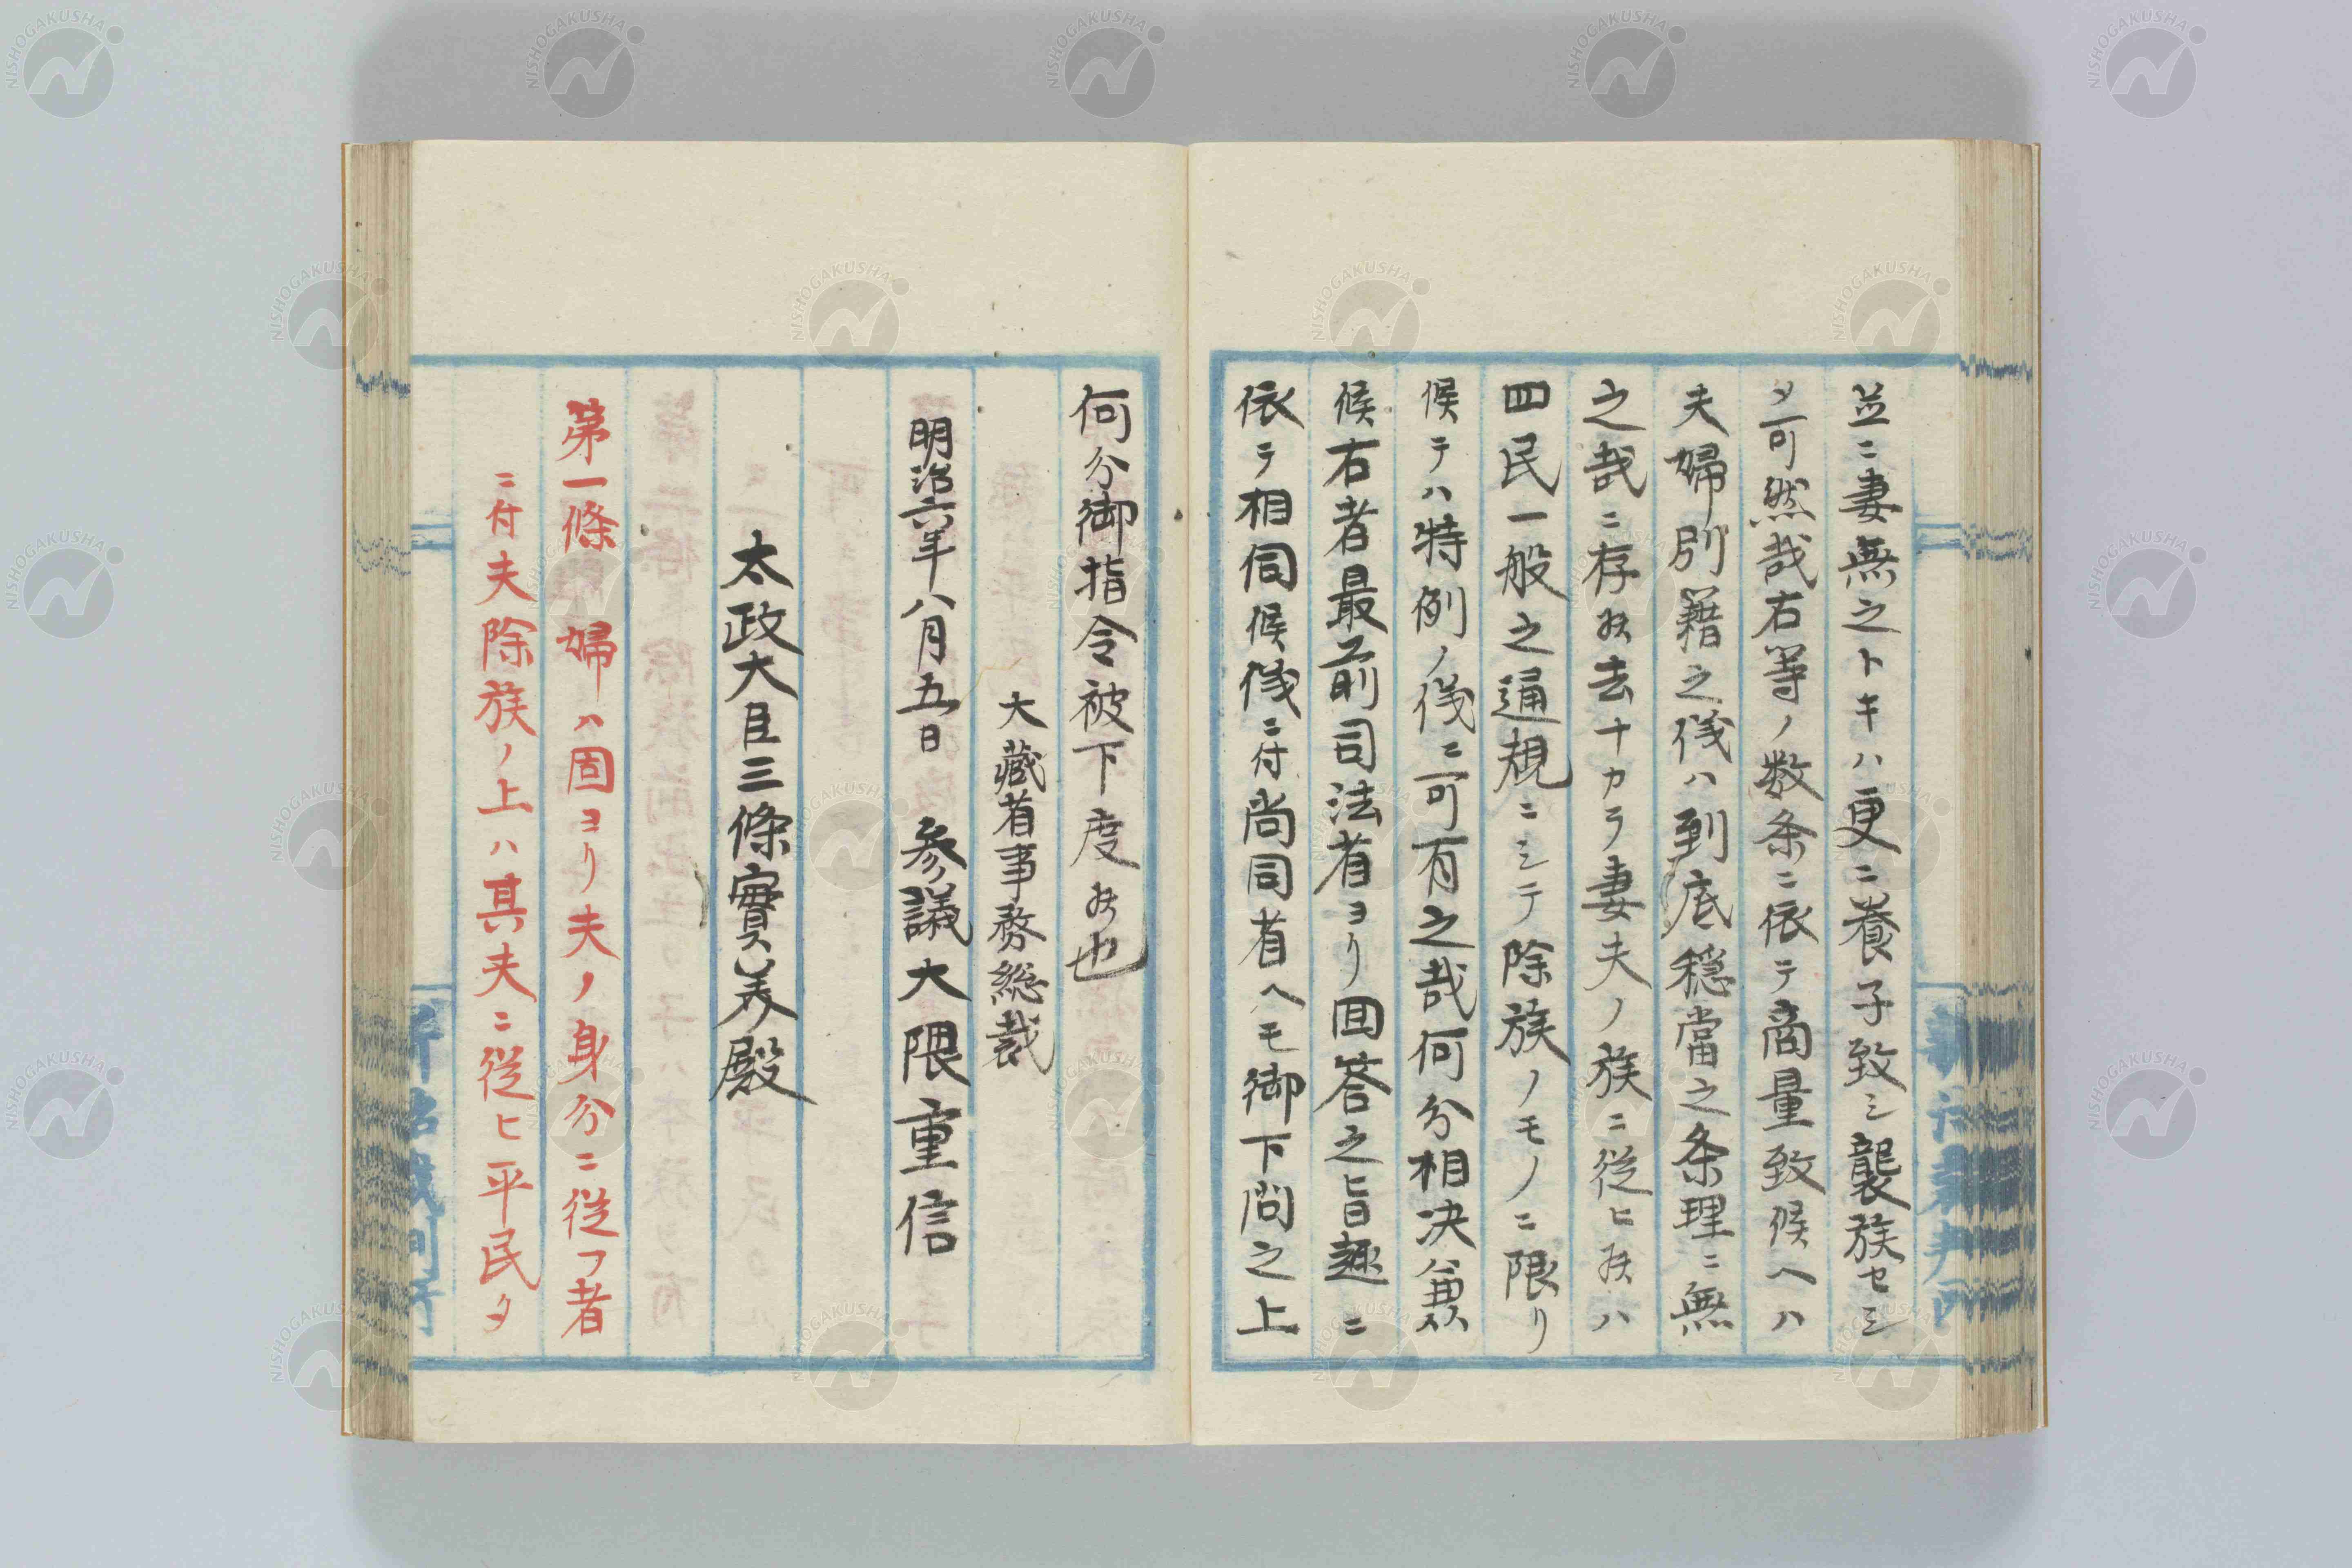 並ニ妻無之トキハ更ニ養子致シ襲族セシ
タ可然哉右等ノ数条ニ依テ商量致候ヘハ
夫婦別籍之儀ハ到底穏當之条理ニ無
之哉ニ存候去ナカラ妻夫ノ族ニ従ヒ候ハ
四民一般之通規ニシテ除族ノモノニ限リ
候テハ特例ノ儀ニ可有之哉何分相决兼
候右者最前司法省ヨリ回答之旨趣ニ
依テ相伺候儀ニ付尚同省ヘモ御下問之上
何分御指令被下度候也
大藏省事務総裁
明治六年八月五日 参議大隈重信
太政大臣三條實美殿
第一條 婦ハ固ヨリ夫ノ身分ニ従フ者
ニ付夫除族ノ上ハ其夫ニ従ヒ平民タ
NISHOGAKUSHA